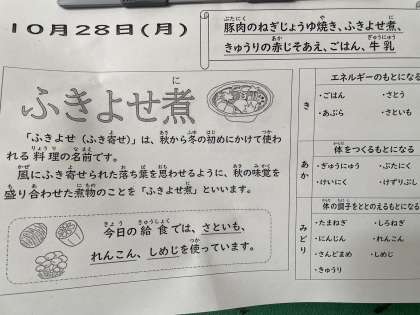 10月28日(月)
豚肉のねぎじょうゆ焼き、ふきよせ煮、
きゅうりの赤じそあえ、ごはん、牛乳
ふきよせ煮
「ふきよせ（ふき寄せ）」は、秋から冬の初めにかけて使わ
れる料理の名前です。
風にふき寄せられた落ち葉を思わせるように、秋の味覚を
盛り合わせた煮物のことを「ふきよせ煮」といいます。
今日の給食では、さといも、
れんこん、しめじを使っています。
エネルギーのもとになる
き
・ごはん ・さとう
・あぶら ・さといも
体をつくるもとになる
あか
・ぎゅうにゅう ・ぶたにく
・けいにく ・けずりぶし
体の調子をととのえるもとになる
みどり
・たまねぎ ・しろねぎ
・にんじん ・れんこん
・さんどまめ ・しめじ
・きゅうり